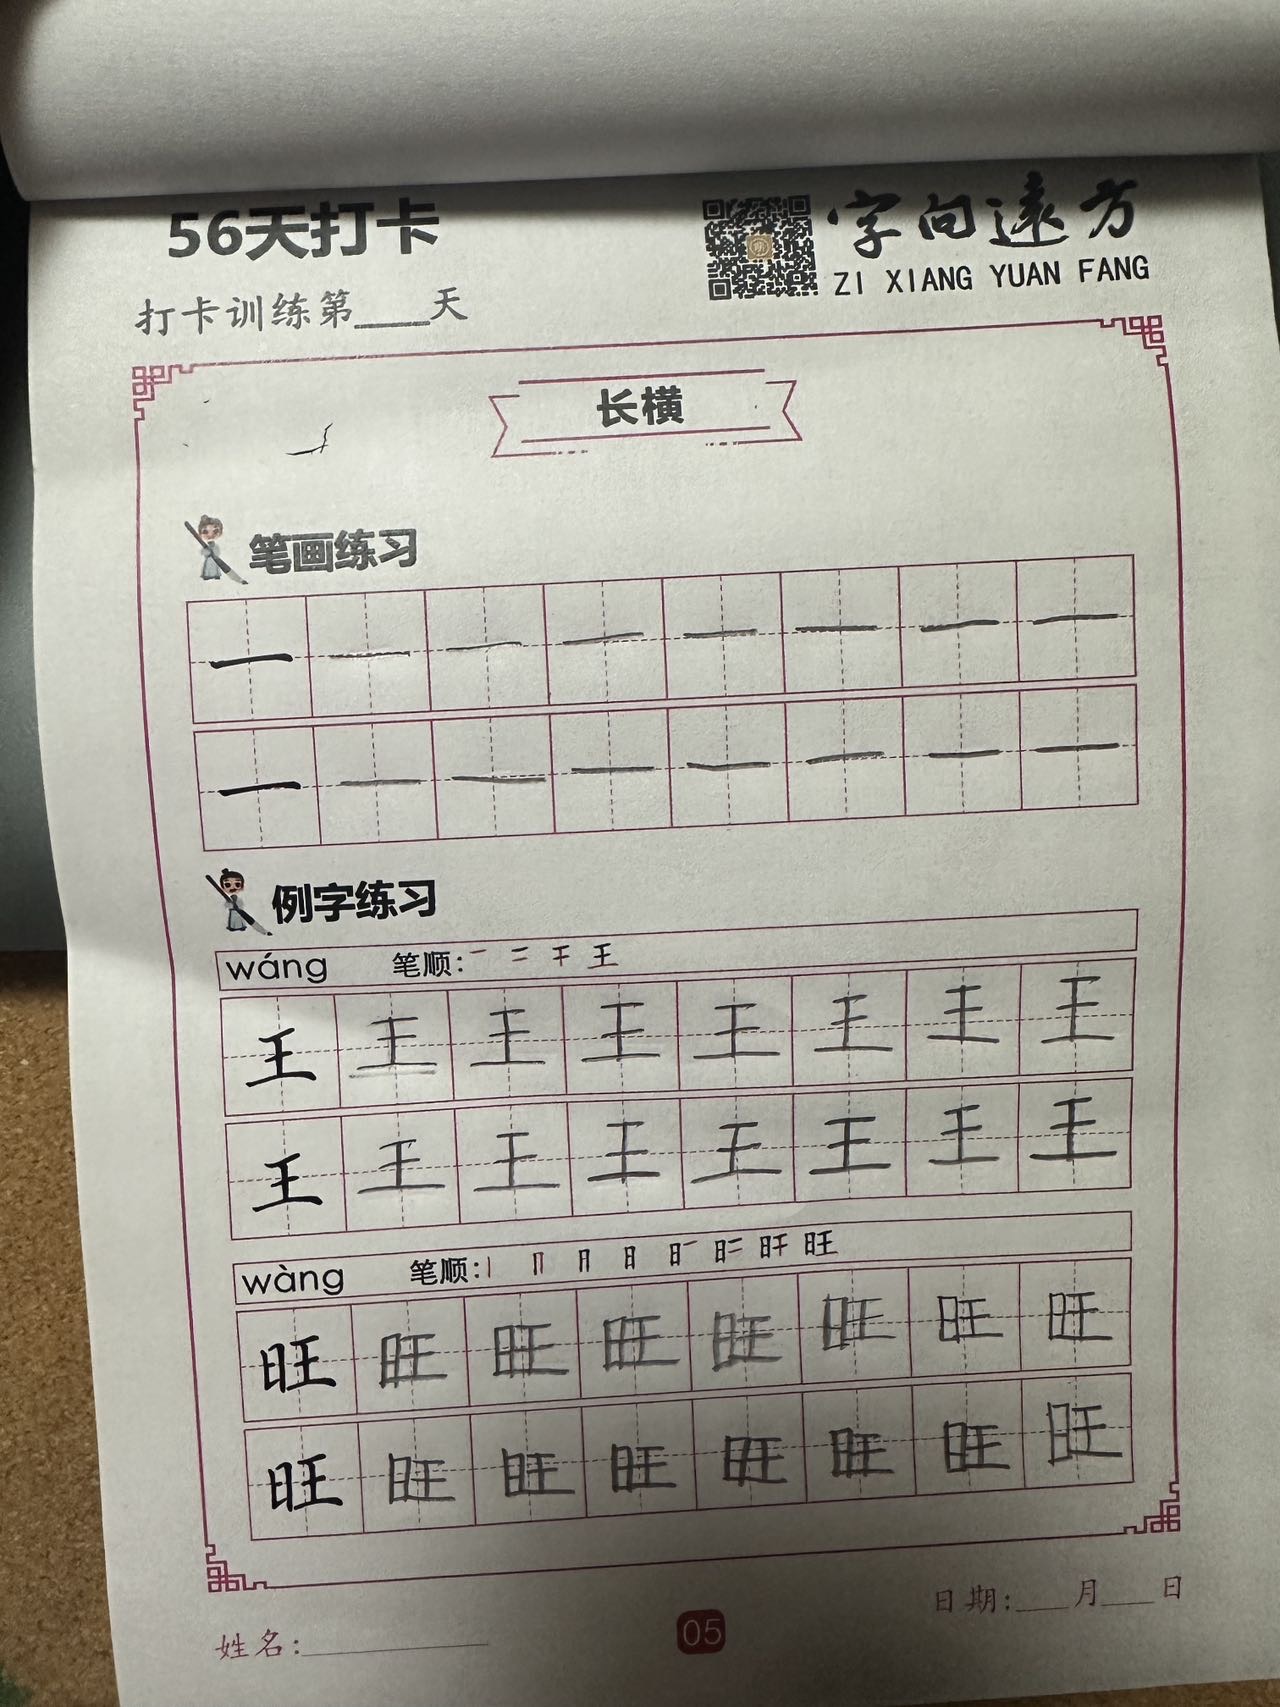 56天打卡
字向遠方
ZI XIANG YUAN FANG
打卡训练第____天
长横
笔画练习
一 一 一 一 一 一 一 一
一 一 一 一 一 一 一 一
例字练习
wáng 笔顺: 一 二 干 王
王 王 王 王 王 王 王 王
王 王 王 王 王 王 王 王
wàng 笔顺: 丨 冂 月 日 旺
旺 旺 旺 旺 旺 旺 旺 旺
旺 旺 旺 旺 旺 旺 旺 旺
日期:___月___日
姓名:
05